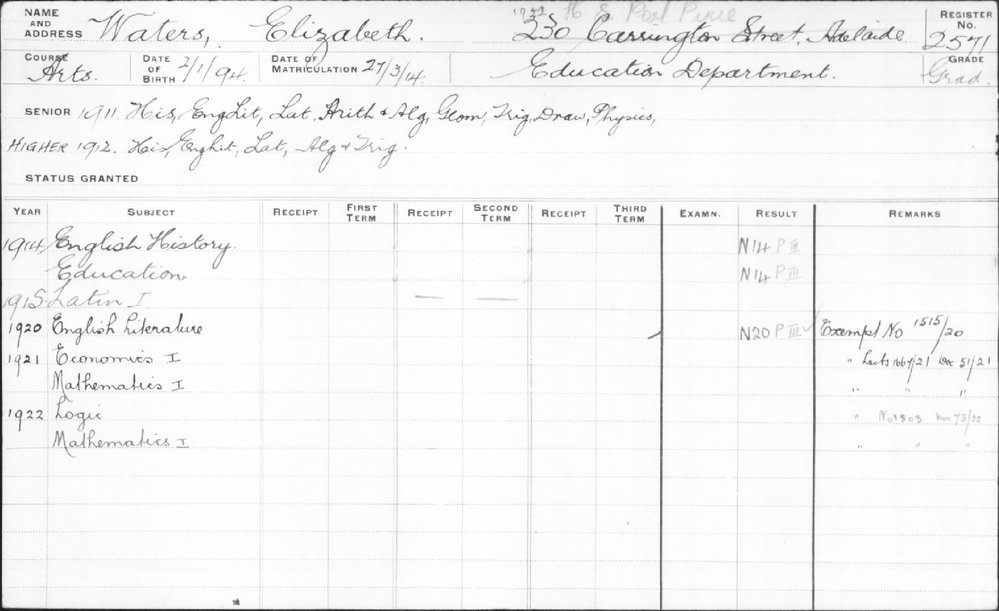 1922 H. S. Port Pirie
NAME AND ADDRESS Waters, Elizabeth. 230 Carrington Street, Adelaide REGISTER No. 2571
COURSE Arts. DATE OF BIRTH 2/1/94. DATE OF MATRICULATION 27/3/14. Education Department. GRADE Grad.
SENIOR 1911 His, Eng Lit, Lat, Arith + Alg, Geom, Trig, Draw, Physics,
HIGHER 1912. His, Eng Lit, Lat, Alg + Trig.
STATUS GRANTED
YEAR SUBJECT RECEIPT FIRST TERM RECEIPT SECOND TERM RECEIPT THIRD TERM EXAMN. RESULT REMARKS
1914 English History. N14 P III
Education N14 P III
1915 Latin I — —
1920 English Literature N20 P III ✓ Exempt No 1515/20
1921 Economics I " Lects 1667/21 51/21
Mathematics I " " "
1922 Logic " No 1803 73/22
Mathematics I " " "